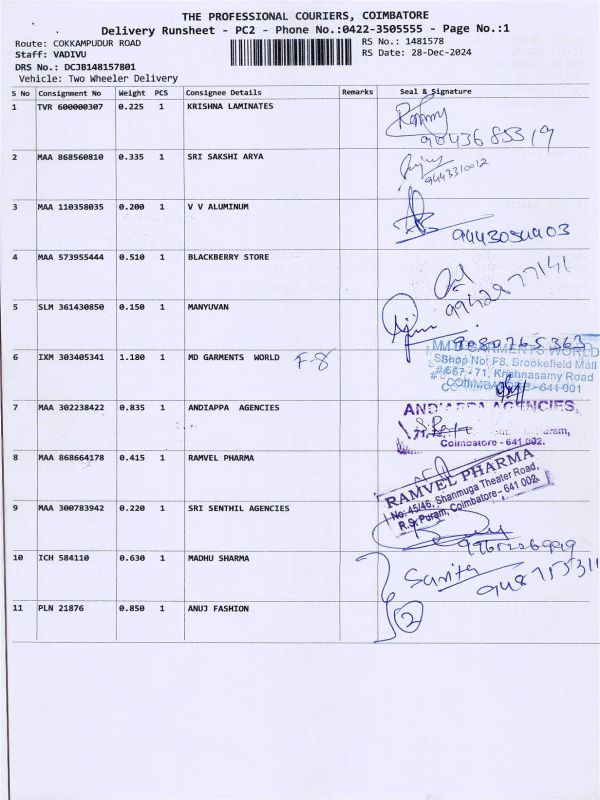 THE PROFESSIONAL COURIERS, COIMBATORE
Delivery Runsheet - PC2 - Phone No.:0422-3505555 - Page No.:1
Route: COKKAMPUDUR ROAD
RS No.: 1481578
Staff: VADIVU
RS Date: 28-Dec-2024
DRS No.: DCJB148157801
Vehicle: Two Wheeler Delivery
S No Consignment No Weight PCS Consignee Details Remarks Seal & Signature
1 TVR 600000307 0.225 1 KRISHNA LAMINATES
2 MAA 868560810 0.335 1 SRI SAKSHI ARYA
9443310012
3 MAA 110358035 0.200 1 V V ALUMINUM
4 MAA 573955444 0.510 1 BLACKBERRY STORE
5 SLM 361430850 0.150 1 MANYUVAN
9080765363
6 IXM 303405341 1.180 1 MD GARMENTS WORLD F-8
MD GARMENTS WORLD
Shop No: F8, Brookefield Mall
#:667 - 71, Krishnasamy Road
COIMBATORE - 641 001
7 MAA 302238422 0.835 1 ANDIAPPA AGENCIES
ANDIAPPA AGENCIES,
Coimbatore - 641 002.
8 MAA 868664178 0.415 1 RAMVEL PHARMA
RAMVEL PHARMA
No: 45/46, Shanmuga Theater Road,
R.S. Puram, Coimbatore - 641 002.
9 MAA 300783942 0.220 1 SRI SENTHIL AGENCIES
10 ICH 584110 0.630 1 MADHU SHARMA
Sarita
11 PLN 21876 0.850 1 ANUJ FASHION
2